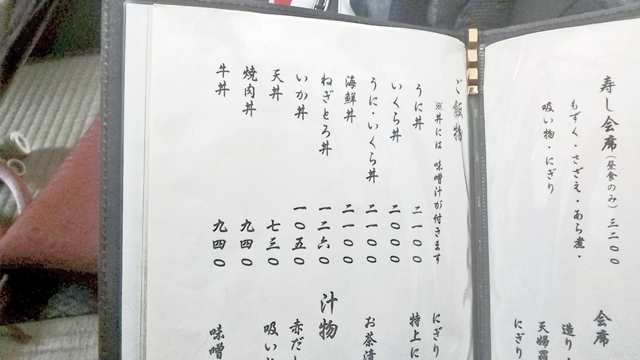 寿し会席（昼食のみ）三二〇〇
もずく・さざえ・あら煮・
吸い物・にぎり
会席
造り
天婦
にぎり
ご飯物
※丼には 味噌汁が付きます
うに丼 二一〇〇
いくら丼 二〇〇〇
うに・いくら丼 二一〇〇
海鮮丼 二一〇〇
ねぎとろ丼 一二六〇
いか丼 一〇五〇
天丼 七三〇
焼肉丼 九四〇
牛丼 九四〇
にぎり
特上に
お茶漬
汁物
赤だし
吸い
味噌